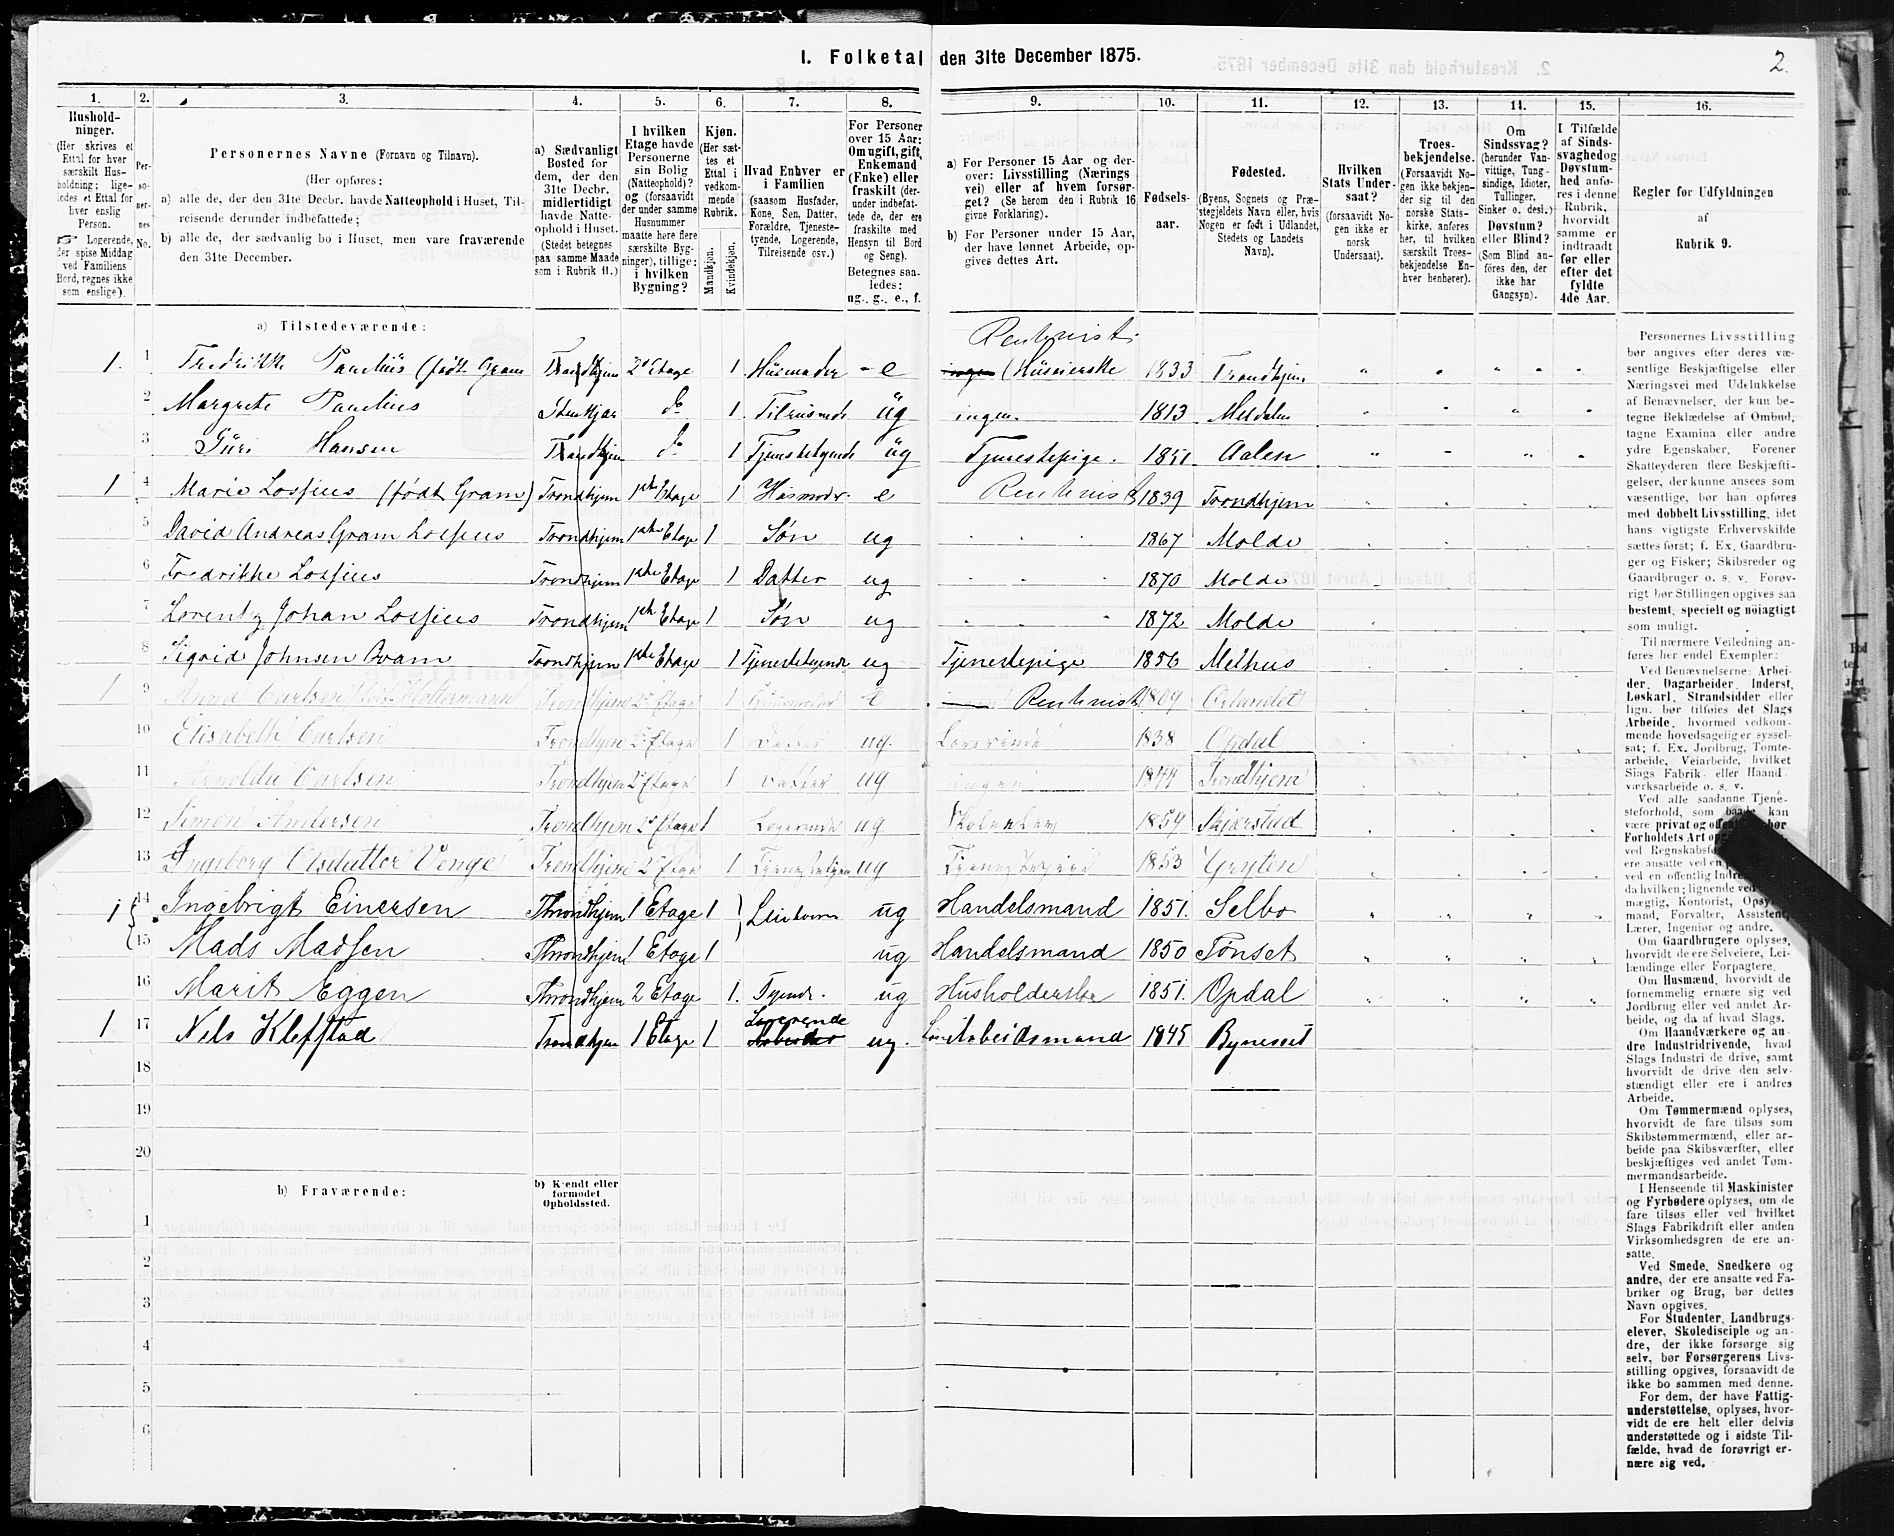 1. Folketal den 31te December 1875.
2.
1. 2. 3. 4. 5. 6. 7. 8. 9. 10. 11. 12. 13. 14. 15. 16.
Hushold-
ninger.
(Her skrives et
Ettal for hver
særskilt Hus-
holdning; lige-
ledes et Ettal for
hver enslig
Person.
Logerende,
der spise Middag
ved Familiens
Bord, regnes ikke
som enslige).
Per-
so-
ner-
nes
No.
Personernes Navne (Fornavn og Tilnavn).
(Her opføres:
a) alle de, der den 31te Decbr. havde Natteophold i Huset, Til-
reisende derunder indbefattede;
b) alle de, der sædvanlig bo i Huset, men vare fraværende
den 31te December.
a) Sædvanligt
Bosted for
dem, der den
31te Decbr.
midlertidigt
havde Natte-
ophold i Huset.
(Stedet betegnes
paa samme Maade
som i Rubrik 11.)
I hvilken
Etage havde
Personerne
sin Bolig
(Natteophold)?
og (forsaavidt
der under samme
Husnummer
maatte høre flere
særskilte Byg-
ninger), tillige:
i hvilken
Bygning?
Kjøn.
(Her sæt-
tes et
Ettal i
vedkom-
mende
Rubrik.
Mandkjøn.
Kvindekjøn.
Hvad Enhver er
i Familien
(saasom Husfader,
Kone, Søn, Datter,
Forældre, Tjeneste-
tyende, Logerende,
Tilreisende osv.)
For Personer
over 15 Aar:
Om ugift, gift,
Enkemand
(Enke) eller
fraskilt (der-
under indbefat-
tede de, der ere
fraskilte med
Hensyn til Bord
og Seng).
Betegnes saa-
ledes:
ug., g., e., f.
a) For Personer 15 Aar og der-
over: Livsstilling (Nærings
vei) eller af hvem forsør-
get? (Se herom den i Rubrik 16
givne Forklaring).
b) For Personer under 15 Aar,
der have lønnet Arbeide, op-
gives dettes Art.
Fødsels-
aar.
Fødested.
(Byens, Sognets og Præ-
stegjeldets Navn eller, hvis
Nogen er født i Udlandet,
Stedets og Landets
Navn).
Hvilken
Stats Under-
saat?
(forsaavidt No-
gen ikke er
norsk
Undersaat).
Troes-
bekjendelse.
(Forsaavidt No-
gen ikke bekjen-
der sig til den
norske Stats-
kirke, anføres
her, til hvilken
særskilt Troes-
bekjendelse En-
hver henhører).
Om
Sindssvag?
(herunder Van-
vittige, Tung-
sindige, Idioter,
Tullinger,
Sinker o. desl.)
Døvstum?
eller Blind?
(Som Blind an-
føres den, der
ikke har
Gangsyn).
I Tilfælde
af Sinds-
svaghed og
Døvstum-
hed anfø-
res i denne
Rubrik,
hvorvidt
samme er
indtraadt
før eller
efter det
fyldte
4de Aar.
Regler for Udfyldningen
af
Rubrik 9.
a) Tilstedeværende:
1. 1 Fredrikke Paulius (født Gram Trondhjem 2d Etage 1 Husmoder e Rentenist. ingen (Huseierske 1833 Trondhjem
2 Margrete Paulius Stenkjær do 1 Tilreisende ug ingen 1813 Meldalen
3 Guri Hansen Trondhjem do 1 Tjenstetyende ug Tjenestepige. 1851 Aalen
1 4 Marie Lossius (født Gram) Trondhjem 1ste Etage 1 Husmoder e Rentenist 1839 Trondhjem
5 David Andreas Gram Lossius Trondhjem 1ste Etage 1 Søn ug 1867 Molde
6 Fredrikke Lossius Trondhjem 1ste Etage 1 Datter ug 1870 Molde
7 Lorentz Johan Lossius Trondhjem 1ste Etage 1 Søn ug 1872 Molde
8 Sigrid Johnsen Kvam Trondhjem 1ste Etage 1 Tjenestetyende ug Tjenestepige 1856 Melhus
1 9 Anna Carlsen Trondhjem 2d Etage 1 Husmoder e Rentenist 1809 Ørlandet
10 Elisabeth Carlsen Trondhjem 2d Etage 1 Datter ug. Lærerinde 1838 Opdal
11 Arnolda Carlsen Trondhjem 2d Etage 1 Datter ug ingen 1844 Trondhjem
12 Simon Andersen Trondhjem 2d Etage 1 Logerende ug 1859 Skjerstad
13 Ingeborg Olsdatter Venge Trondhjem 2d Etage 1 ug Tjenestepige 1853 Gryten
1 14 Ingebrigt Einersen Throndhjem 1 Etage 1 ug Handelsmand 1851. Selbo
15 Mads Madsen Throndhjem 1 Etage 1 ug Handelsmand 1850 Tønset
16 Marit Eggen Throndhjem 2 Etage 1. Tyende. ug Husholderske 1851. Opdal
1 17 Nels Klefstad Trondhjem 1 Etage 1 Logerende Arbeider ug. Arbeidsmand 1845 Bynesset
18
19
20
b) Fraværende:
b) Kjendt eller
formodet
Opholdssted.
1
2
3
4
5
6
Personernes Livsstilling
bør angives efter deres væ-
sentlige Beskjæftigelse eller
Næringsvei med Udelukkelse
af Benævnelser, der kun be-
tegne Beklædelse af Ombud,
tagne Examina eller andre
ydre Egenskaber. Forener
Skatteyderen flere Beskjæfti-
gelser, der kunne ansees som
væsentlige, bør han opføres
med dobbelt Livsstilling, idet
hans vigtigste Erhvervskilde
sættes først; f. Ex. Gaardbru-
ger og Fisker; Skibsreder og
Gaardbruger o. s. v. Forøv-
rigt bør Stillingen opgives saa
bestemt, specielt og nøiagtigt
som muligt.
Til nærmere Veiledning an-
føres her endel Exempler:
Ved Benævnelserne: Arbei-
der, Dagarbeider, Inderst,
Løskarl, Strandsidder eller
lign. bør tilføies det Slags
Arbeide, hvormed vedkom-
mende hovedsagelig er syssel-
sat; f. Ex. Jordbrug, Tomte-
arbeide, Veiarbeide, hvilket
Slags Fabrik- eller Haand-
værksarbeide o. s. v.
Ved alle saadanne Tjene-
steforhold, som baade kan
være privat og offentligt bør
Forholdets Art
ved
ere ansatte ved en
ved en offentlig
da hvilken; lignende ved
mægtig, Kontorist,
mand, Forvalter, Assistent,
Lærer, Ingeniør og andre.
Om Gaardbrugere oplyses,
hvorvidt de ere Selveiere, Lei-
lændinge eller Forpagtere.
Om Husmænd, hvorvidt de
fornemmelig ernære sig ved
Jordbrug eller ved andet Ar-
beide, og da af hvad Slags.
Om Haandværkere og an-
dre Industridrivende, hvad
Slags Industri de drive, samt
hvorvidt de drive den selv-
stændigt eller ere i andres
Arbeide.
Om Tømmermænd oplyses,
hvorvidt de fare tilsøs som
Skibstømmermænd, eller ar-
beide paa Skibsværfter, eller
beskjæftiges ved andet Tøm-
mermandsarbeide.
I Henseende til Maskinister
og Fyrbødere oplyses, om de
fare tilsøs eller ved hvilket
Slags Fabrikdrift eller anden
Virksomhedsgren de ere an-
satte.
Ved Smede, Snedkere og
andre, der ere ansatte ved Fa-
briker og Brug, bør dettes
Navn opgives.
For Studenter, Landbrugs-
elever, Skoledisciple og an-
dre, der ikke forsørge sig
selv, bør Forsørgerens Livs-
stilling opgives, forsaavidt de
ikke bo sammen med denne.
For dem, der have Fattig-
understøttelse, oplyses, hvor-
vidt de ere helt eller delvis
understøttede og i sidste Til-
fælde, hvad de forøvrigt er-
nære sig ved.